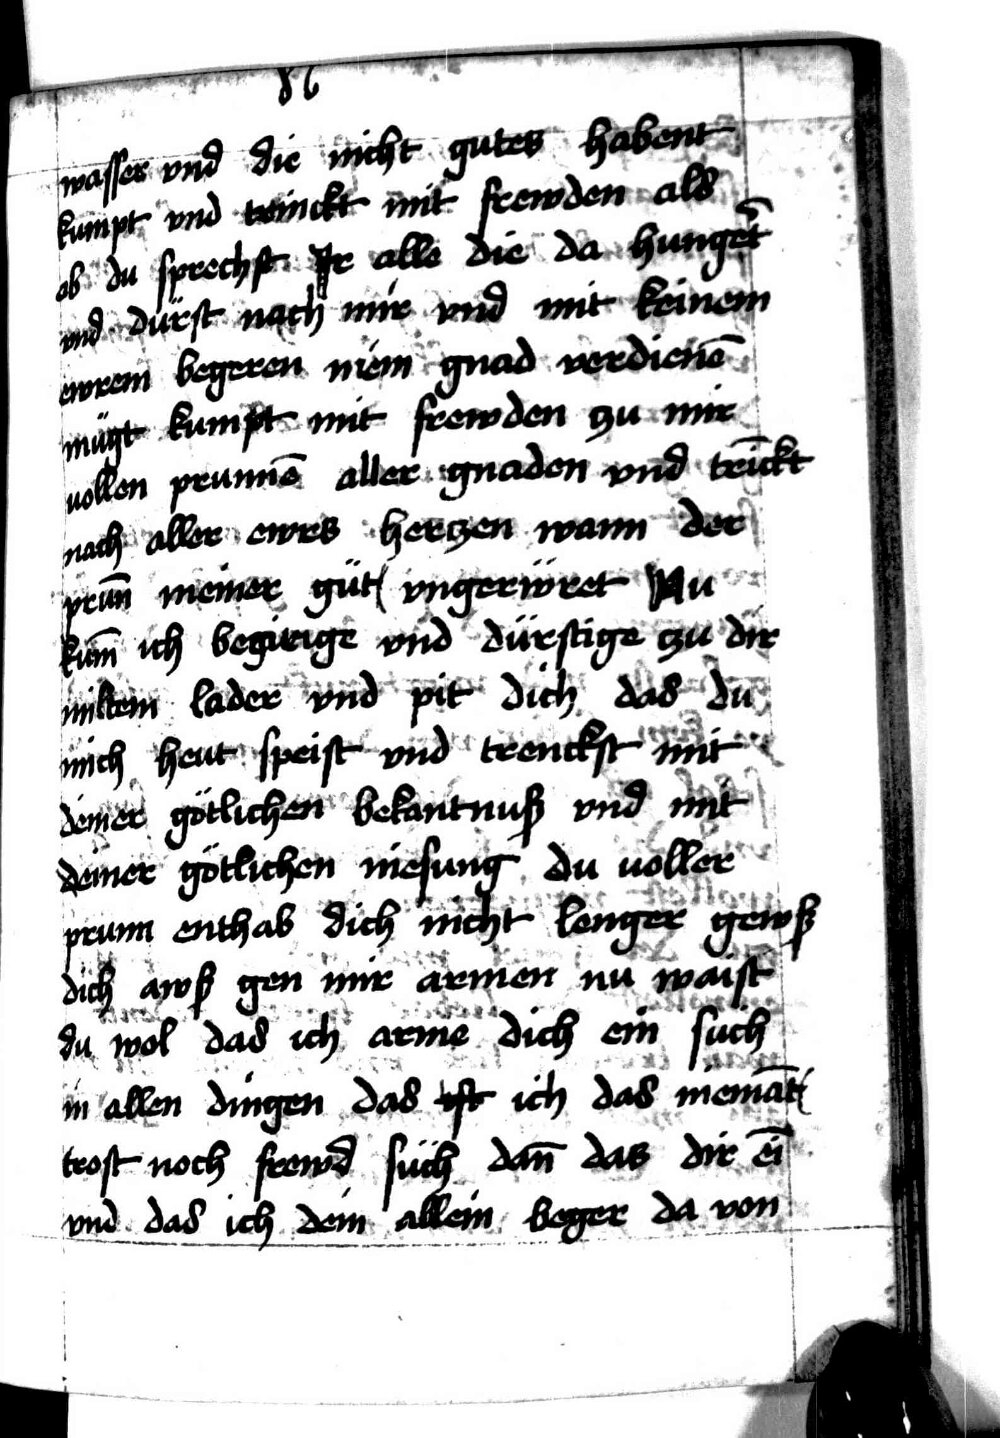 86
wasser vnd die nicht gutes habent
kumpt vnd trinckt mit frewden als
ob du sprechst Ir alle die da hungert̄
vnd dürst nach mir vnd mit keinem
ewrem begeren mein gnad verdienē
mügt kumpt mit frewden zu mir
vollen prunnē aller gnaden vnd trīckt
nach aller ewrs hertzen wann der
prun̄ meiner güt vngerüret Nu
kum̄ ich begirige vnd dürstige zu dir
miltem lader vnd pit dich das du
mich heut speist vnd trenckst mit
deiner götlichen bekantnuß vnd mit
deiner götlichen niesung du voller
prunn enthab dich nicht lenger gewß
dich awß gen mir armen nu waist
du wol das ich arme dich ein such
in allen dingen das ist ich das niemāt
trost noch frewd such dan̄ das dir eī
vnd das ich dein allein beger da von